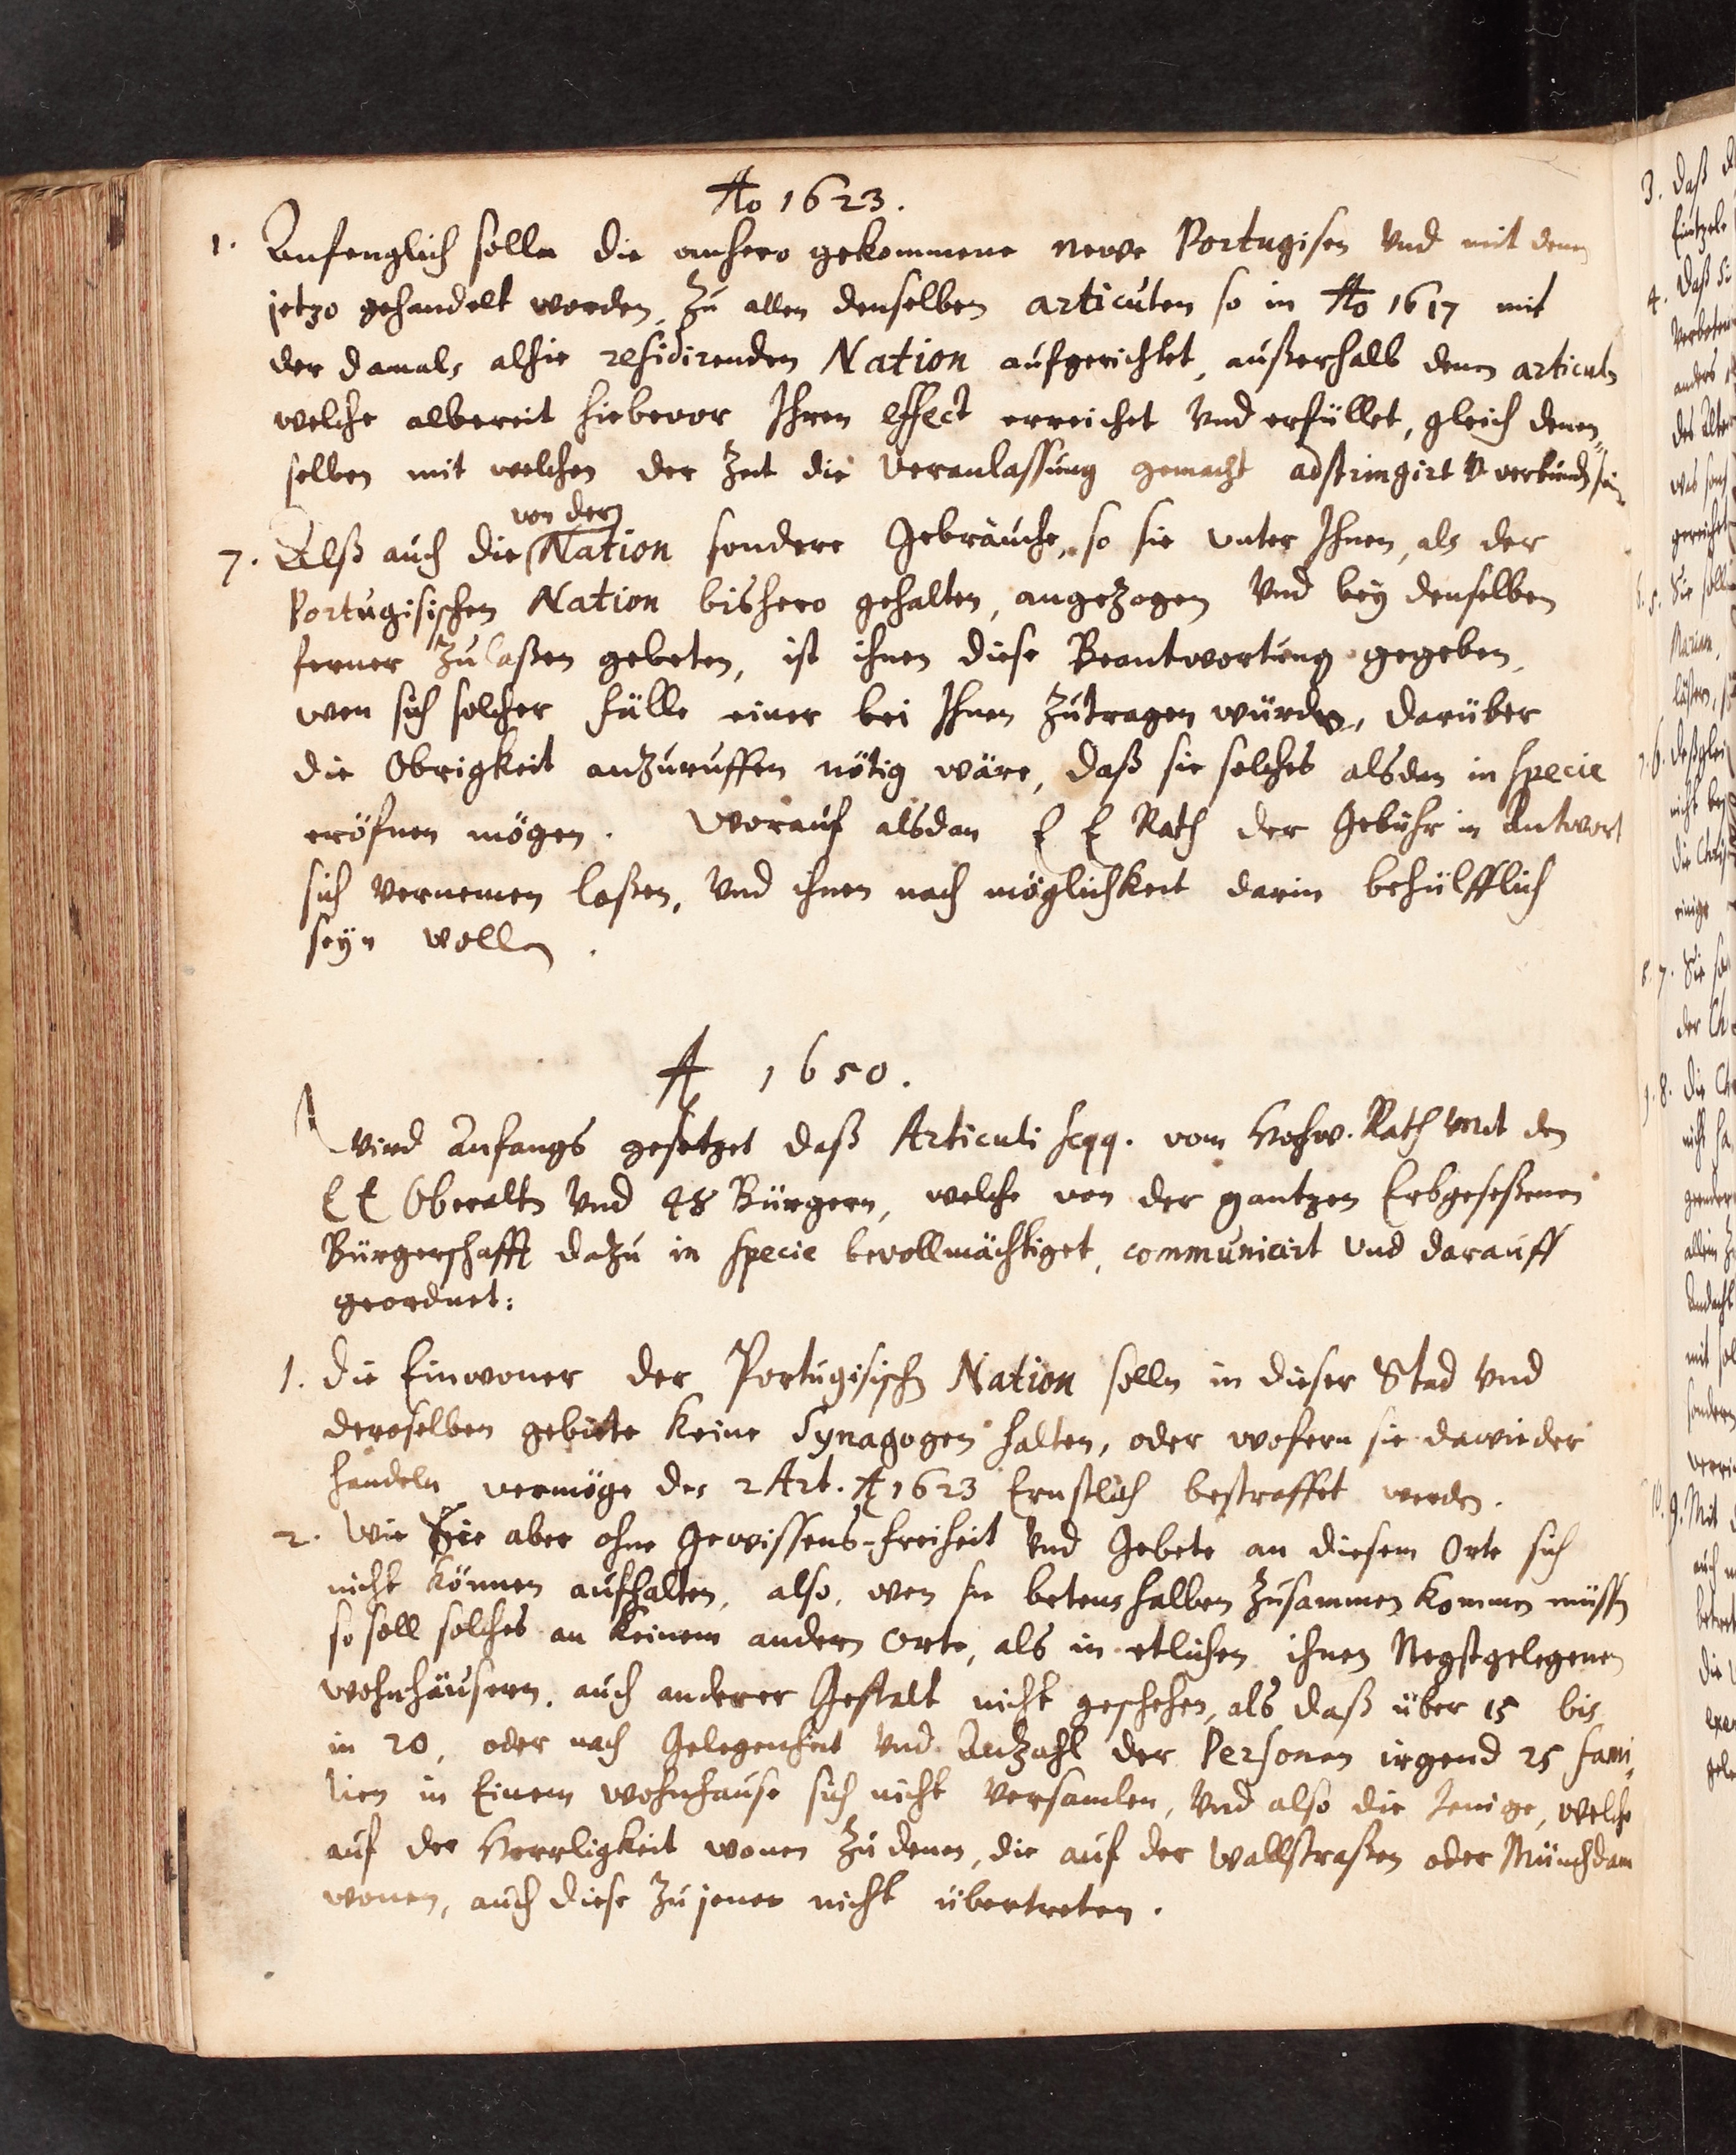 Ao 1623.
1. Anfenglich sollen die anhero gekommene newe Portugisen Vnd mit denen
jetzo gehandelt worden, Zu allen denselben articulen so in Ao 1617 mit
der damals alhie residirenden Nation aufgerichtet, außerhalb denen articuln
welche albereit hiebevor Ihren effect erreichet Vnd erfüllet, gleich denen=
selben mit welchen der Zeit die Veranlassung gemacht adstringirt V verbunden sein
von der
7. Alß auch die Nation sondere Gebräuche, so sie vnter Ihnen, als der
Portugisischen Nation bishero gehalten, angezogen Vnd bey denselben
ferner Zulaßen gebeten, ist ihnen diese Beantwortung gegeben,
wen sich solcher Fälle einer bei Ihnen Zutragen würde, darüber
die Obrigkeit anzuruffen nötig wäre, daß sie solches alsdan in specie
eröfnen mögen. Worauf alsdan E E Rath der Gebühr in Antwort
sich Vernemen laßen, Vnd ihnen nach möglichkeit darin behülfflich
seyn wollen.
A 1650.
Wird Anfangs gesetzet daß Articuli seqq. vom Hochw. Rath mit den
E E Oberalten Vnd 48 Bürgern, welche von der gantzen Erbgeseßenen
Bürgerschafft dazu in specie bevollmächtiget, communicirt Vnd darauff
geordnet:
1. Die Einwoner der Portugisischen Nation sollen in dieser Stad Vnd
deroselben gebiete keine Synagogen halten, oder wofern sie dawieder
handeln vermöge des 2 Art. A 1623 Ernstlich bestraffet werden.
2. Wie Sie aber ohne Gewissens-freiheit Vnd Gebete an diesem Orte sich
nicht können aufhalten, also, wen sie betens halben Zusammen kommen müssen
so soll solches an keinem andern Orte, als in etlichen ihnen Negstgelegenen
wohnhäusern, auch anderer Gestalt nicht geschehen, als daß über 15 bis
in 20, oder nach Gelegenheit Vnd Anzahl der Personen irgend 25 fami=
lien in Einem wohnhause sich nicht Versamlen, Vnd also die Jenige, welche
auf der Herrligkeit wonen Zu denen, die auf der Wallstraßen oder Münchdam
wonen, auch diese Zu jener nicht übertreten.
3. Daß
4. Daß
5. Sie
6.
7. Sie
8. Die
9. Mit